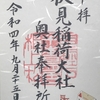 奉拝
伏見稲荷大社
奥社奉拝所
令和四年九月十五日